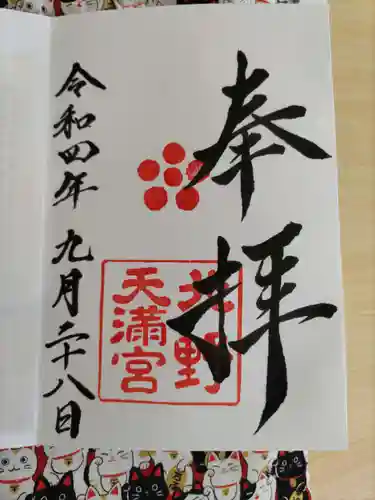 奉拝
北野
天満宮
令和四年九月二十八日